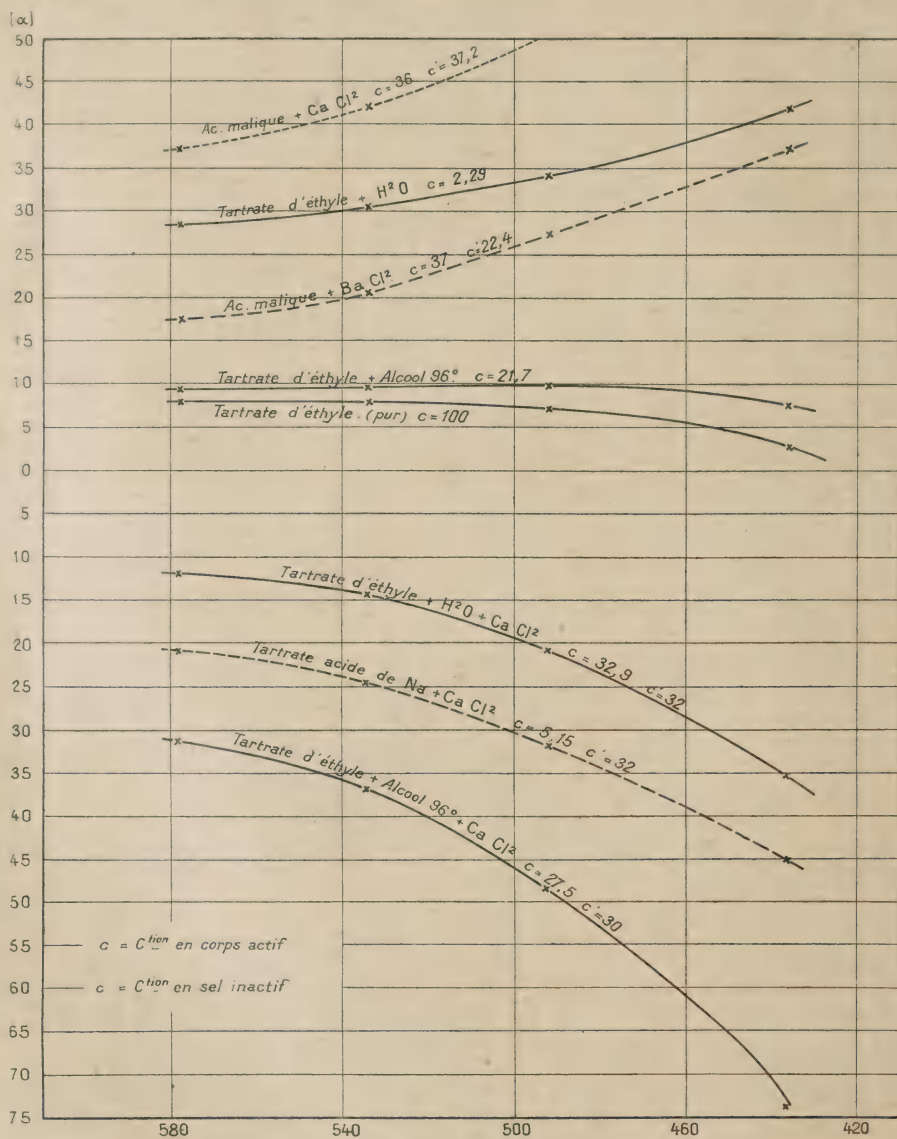 [α]
50
45
40
35
30
25
20
15
10
5
0
5
10
15
20
25
30
35
40
45
50
55
60
65
70
75
Ac. malique + Ca Cl² c=36 c'=37,2
Tartrate d'éthyle + H²O c=2,29
Ac. malique + Ba Cl² c=37 c'=22,4
Tartrate d'éthyle + Alcool 96° c=21,7
Tartrate d'éthyle. (pur) c=100
Tartrate d'éthyle + H²O + Ca Cl² c=32,9 c'=32
Tartrate acide de Na + Ca Cl² c=5,15 c'=32
Tartrate d'éthyle + Alcool 96° + Ca Cl² c=27,5 c'=30
c = Ction en corps actif
c = Ction en sel inactif
580 540 500 460 420